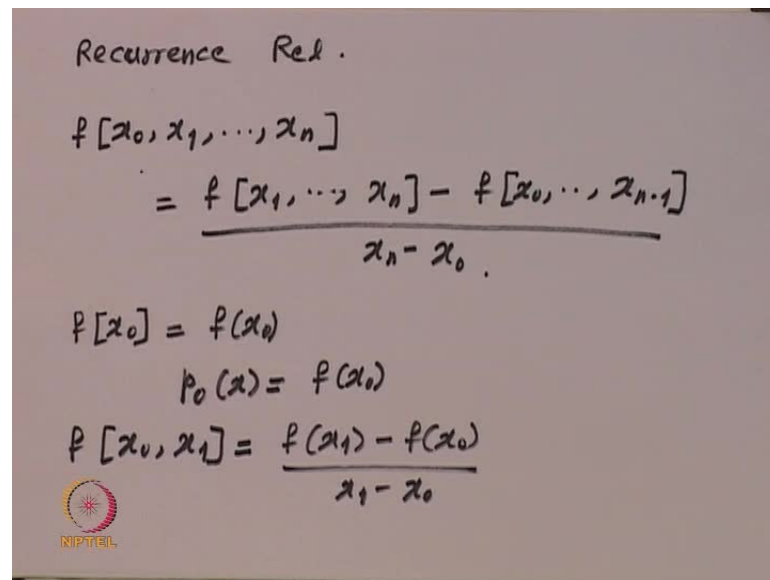 Recurrence Rel.
f[x₀, x₁, ..., xₙ]
= f[x₁, ..., xₙ] - f[x₀, .., xₙ₋₁]
xₙ - x₀ .
f[x₀] = f(x₀)
p₀(x) = f(x₀)
f[x₀, x₁] = f(x₁) - f(x₀)
x₁ - x₀
NPTEL